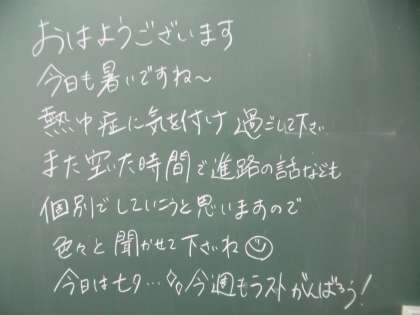 おはようございます
今日も暑いですね〜
熱中症に気を付け過ごして下さい
また空いた時間で進路の話なども
個別でしていこうと思いますので
色々と聞かせて下さいね
今日は七夕…今週もラストがんばろう!